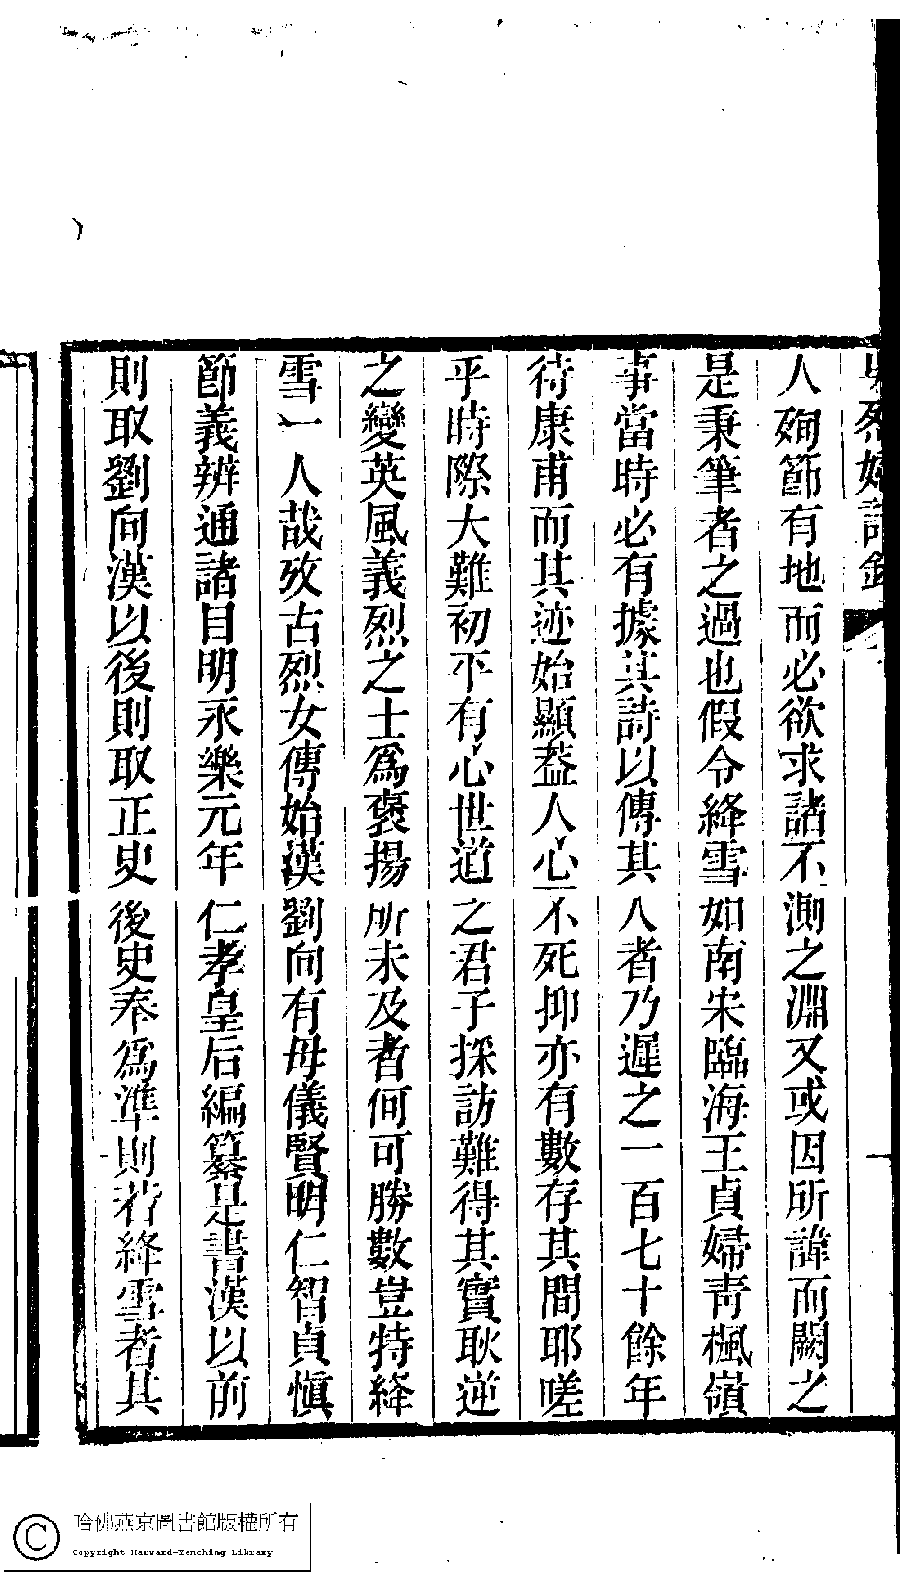 吳烈婦詩鈔
人殉節有地而必欲求諸不測之淵又或因所諱而闕之
是秉筆者之過也假令絳雪如南宋臨海王貞婦靑楓嶺
事當時必有據其詩以傳其人者乃遲之一百七十餘年
待康甫而其迹始顯葢人心不死抑亦有數存其間耶嗟
乎時際大難初平有心世道之君子採訪難得其實耿逆
之變英風義烈之士爲褒揚所未及者何可勝數豈特絳
雪一人哉攷古烈女傳始漢劉向有母儀賢明仁智貞愼
節義辨通諸目明永樂元年仁孝皇后編纂是書漢以前
則取劉向漢以後則取正史後史奉爲準則若絳雪者其
一
哈佛燕京圖書館版權所有
Copyright Harvard-Yenching Library